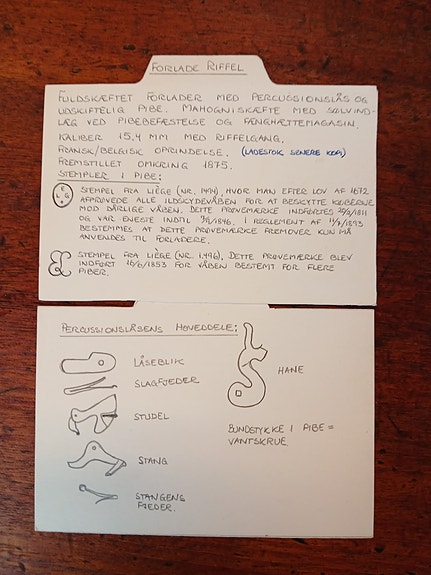 FORLADE RIFFEL
FULDSKÆFTET FORLADER MED PERCUSSIONSLÅS OG
UDSKIFTELIG PIBE. MAHOGNISKÆFTE MED SØLVIND-
LÆG VED PIBEBEFÆSTELSE OG FÆNGHÆTTEMAGASIN.
KALIBER 15,4 MM MED RIFFELGANG.
FRANSK/BELGISK OPRINDELSE. (LADESTOK SENERE KOPI)
FREMSTILLET OMKRING 1875.
STEMPLER I PIBE:
E
L G
STEMPEL FRA LIÈGE (NR. 1494), HVOR MAN EFTER LOV AF 1672
AFPRØVEDE ALLE ILDSKYDEVÅBEN FOR AT BESKYTTE KØBERNE
MOD DÅRLIGE VÅBEN. DETTE PRØVEMÆRKE INDFØRTES
OG VAR ENESTE INDTIL 1846. I REGLEMENT AF
BESTEMMES AT DETTE PRØVEMÆRKE FREMOVER KUN MÅ
ANVENDES TIL FORLADERE.
STEMPEL FRA LIÈGE (NR. 1496), DETTE PRØVEMÆRKE BLEV
INDFØRT 16/6/1853 FOR VÅBEN BESTEMT FOR FLERE
PIBER.
PERCUSSIONSLÅSENS HOVEDDELE:
LÅSEBLIK
SLAGFJEDER
STUDEL
STANG
STANGENS
FJEDER.
HANE
BUNDSTYKKE I PIBE =
VANTSKRUE.